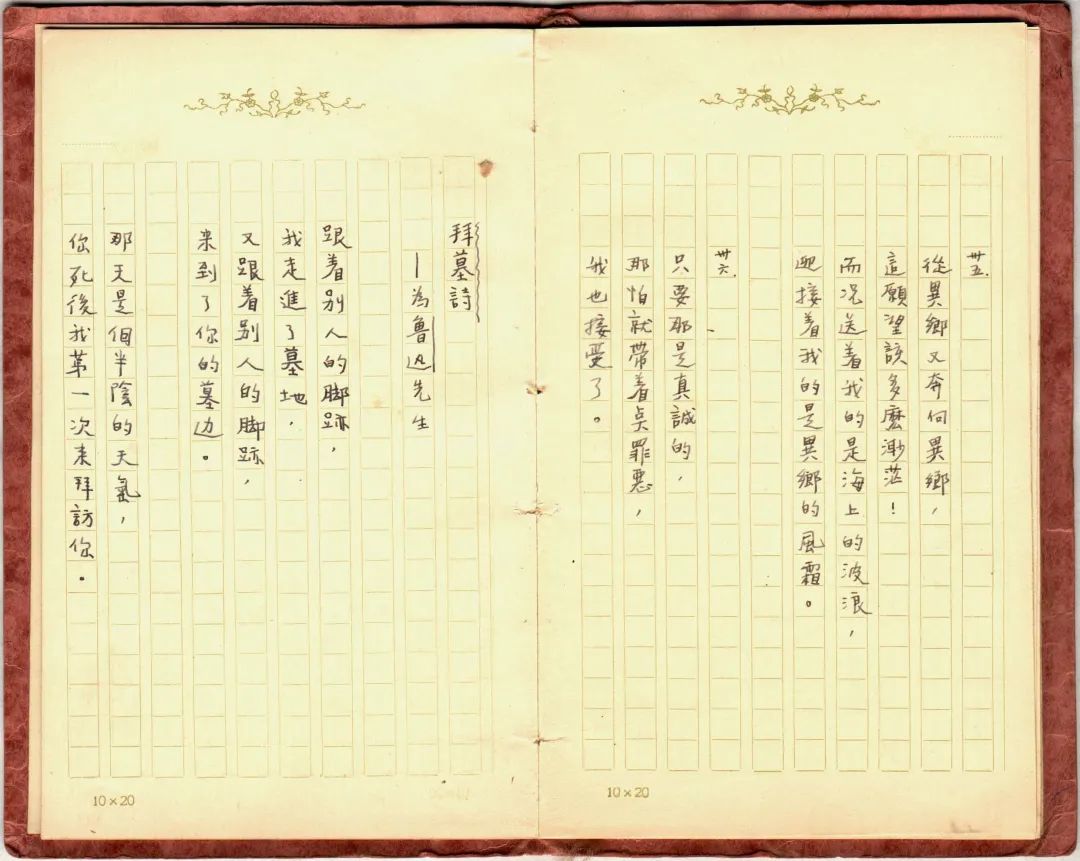 卅五.
從異鄉又奔向異鄉，
這願望該多麼渺茫！
而况送着我的是海上的波浪，
迎接着我的是異鄉的風霜。
卅六.
只要那是真誠的，
那怕就帶着点罪惡，
我也接受了。
10×20
拜墓詩
—為魯迅先生
跟着别人的脚跡，
我走進了墓地，
又跟着别人的脚跡，
来到了你的墓边。
那天是個半陰的天氣，
你死後我第一次来拜訪你。
10×20